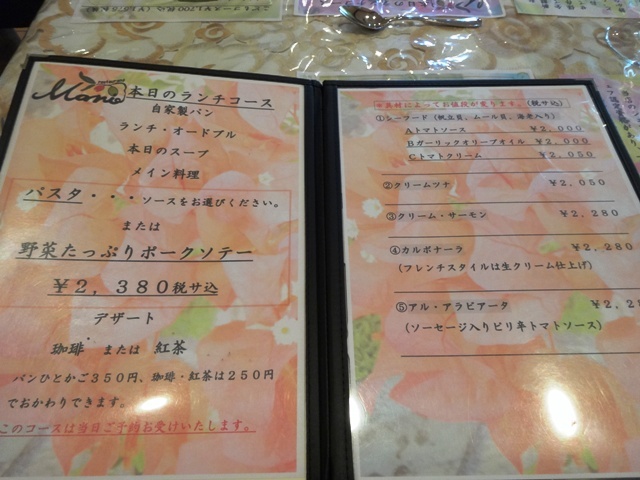 Mano
本日のランチコース
自家製パン
ランチ・オードブル
本日のスープ
メイン料理
パスタ・・・ソースをお選びください。
または
野菜たっぷりポークソテー
¥2,380税サ込
デザート
珈琲 または 紅茶
パンひとかご350円、珈琲・紅茶は250円
でおかわりできます。
このコースは当日ご予約お受けいたします。
※具材によってお値段が変ります。(税サ込)
①シーフード(帆立貝、ムール貝、海老入り)
Aトマトソース ¥2,000
Bガーリックオリーブオイル ¥2,000
Cトマトクリーム ¥2,050
②クリームツナ ¥2,050
③クリーム・サーモン ¥2,280
④カルボナーラ ¥2,280
(フレンチスタイルは生クリーム仕上げ)
⑤アル・アラビアータ
(ソーセージ入りピリ辛トマトソース)